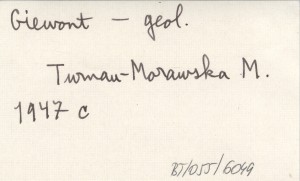 Giewont - geol.
Turnau-Morawska M.
1947 c
BJ/OJJ/6049